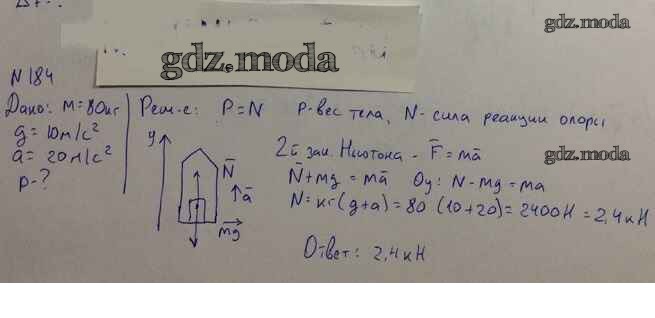 gdz.moda
gdz.moda
N 184
Дано: m=80кг
g = 10м/с²
a = 20м/с²
P-?
Реш-е: P=N P-вес тела, N- сила реакции опоры
y
N̄
ā
mg
2й зак. Ньютона - F̄ = mā
gdz.moda
N̄+mg = mā Oy: N-mg=ma
N=кг(g+a)=80 (10+20)=2400Н = 2,4кН
Ответ: 2,4кН